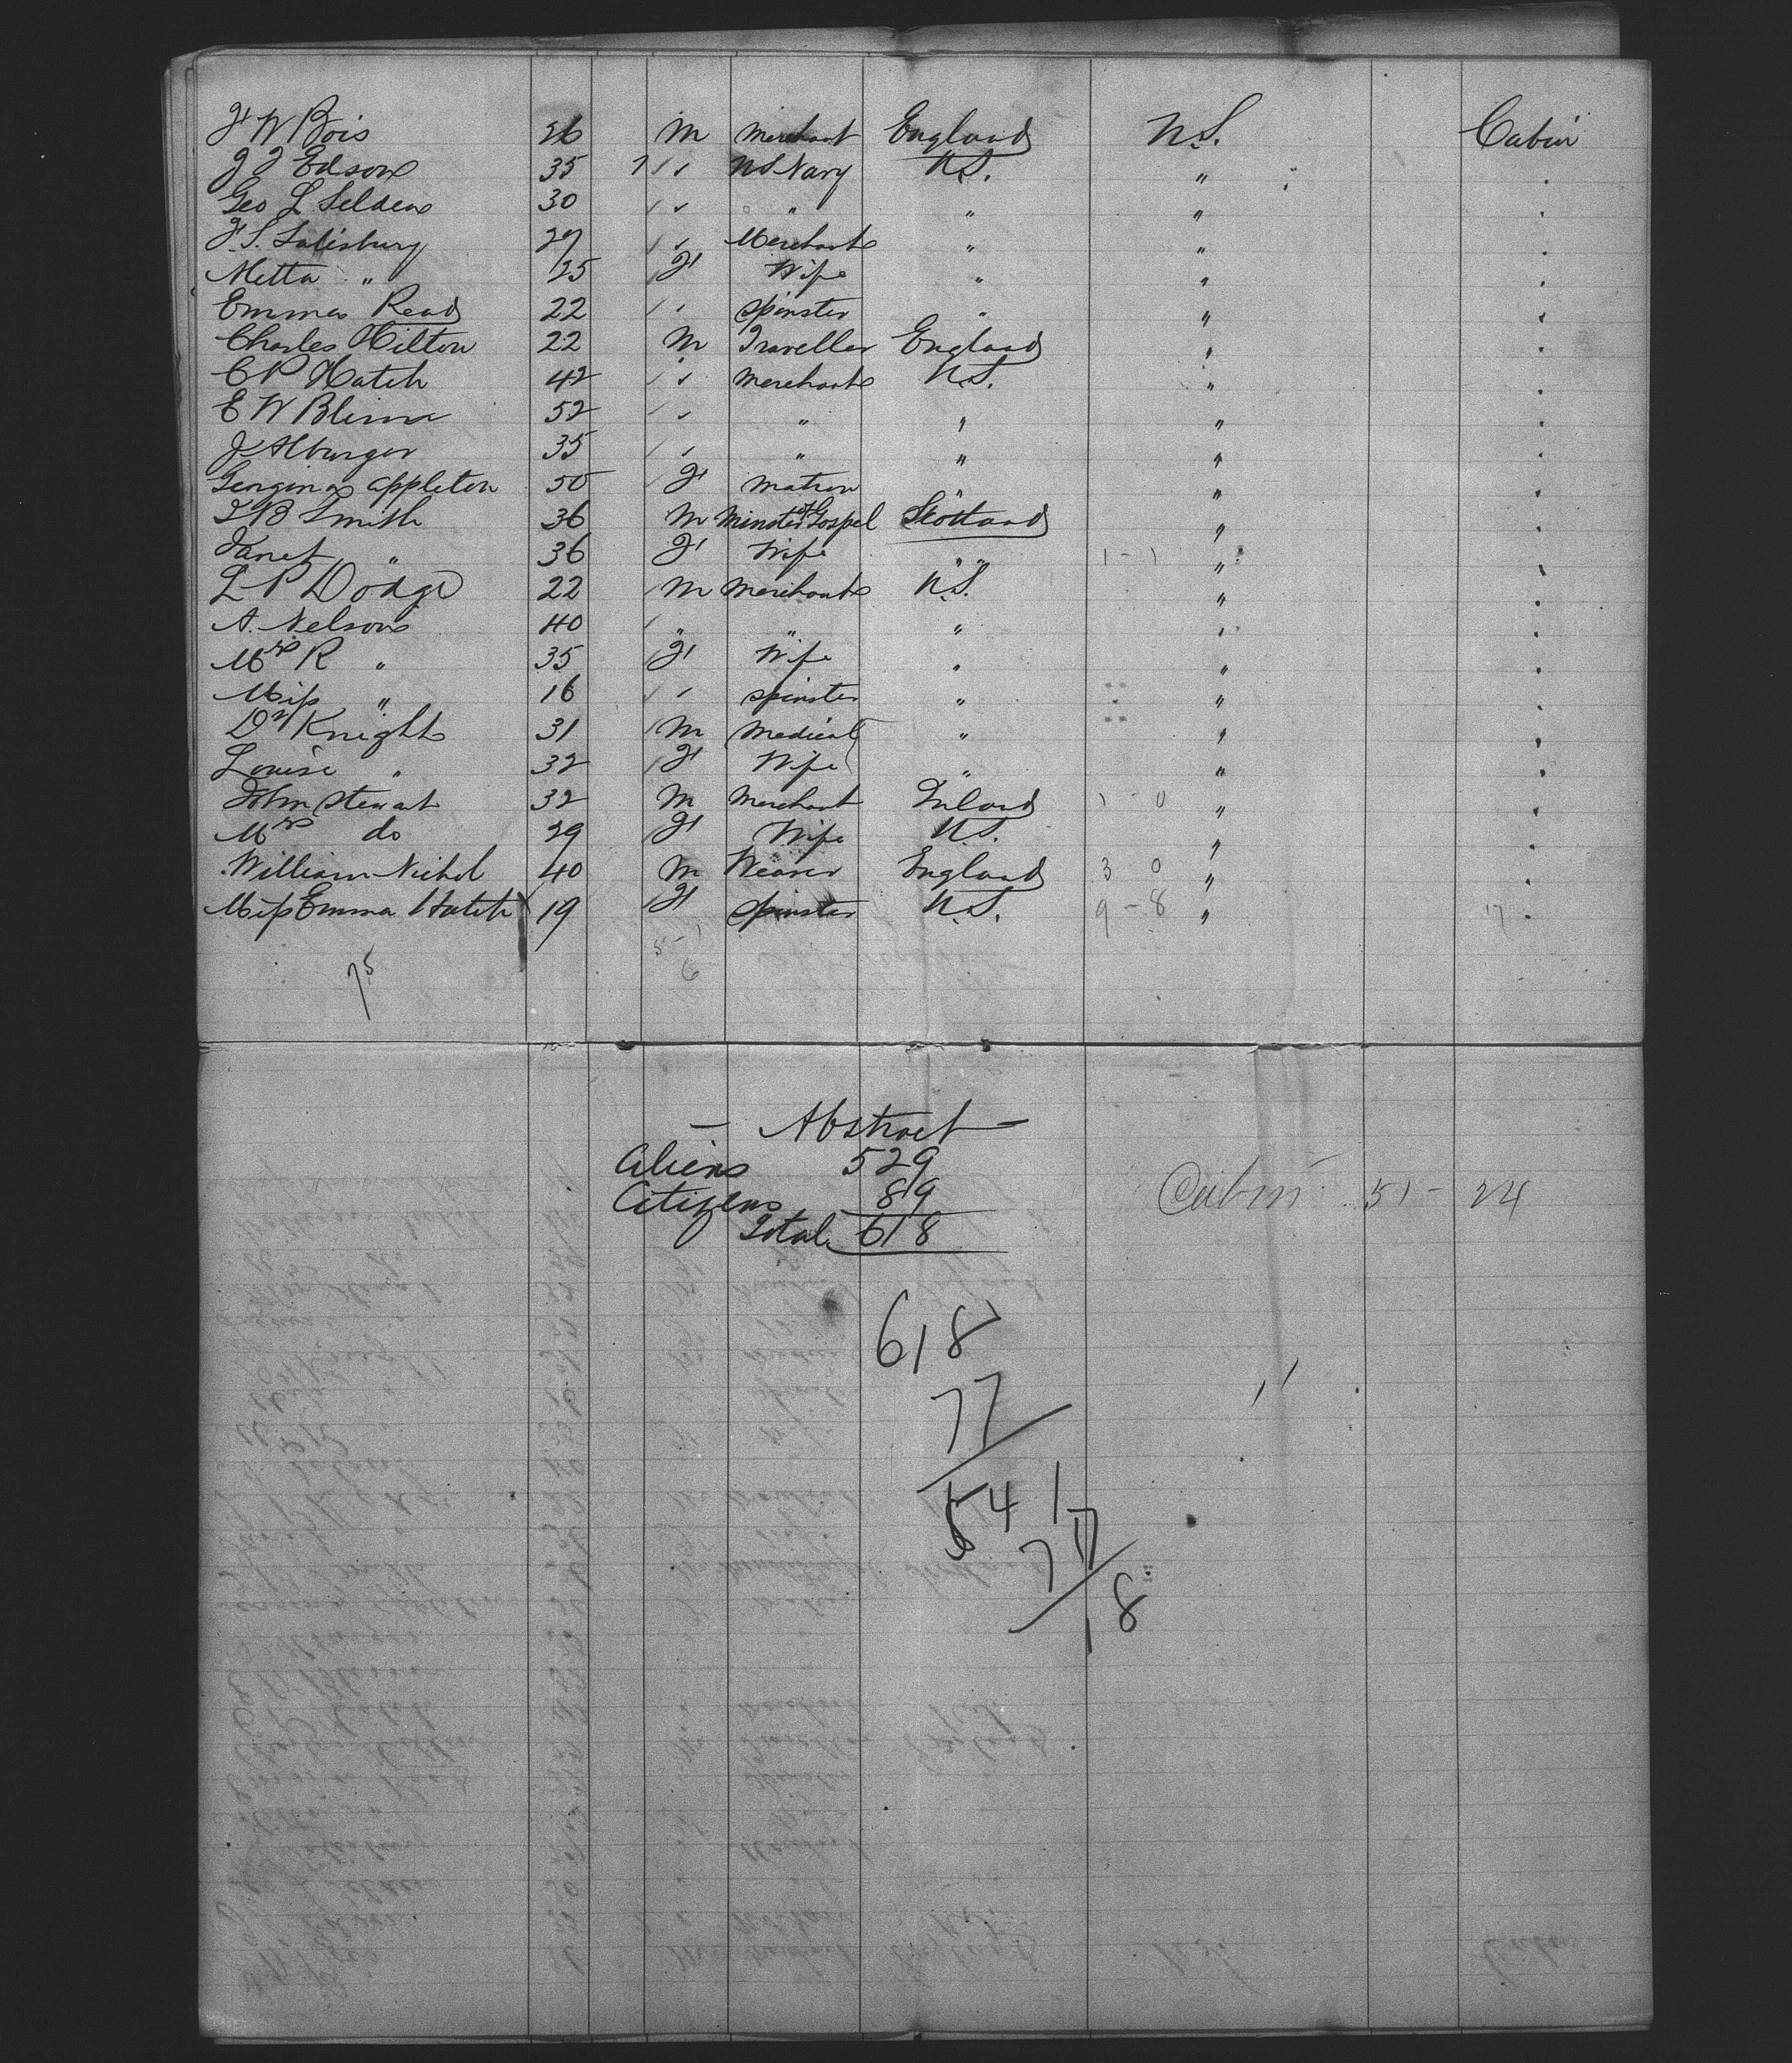 F W Bois 26 M Merchant England U.S. Cabin
J J Edson 35 " U S Navy U.S. " "
Geo L Selden 30 " " " " "
F. S. Salisbury 29 " Merchant " " "
Metta " 25 F Wife " " "
Emma Read 22 " Spinster " " "
Charles Hilton 22 M Traveller England " "
C P Hatch 42 " Merchant U.S. " "
E W Blinn 52 " " " " "
J Alburger 35 " " " " "
Georgina Appleton 50 F Matron " " "
J B Smith 36 M Minster of Gospel Scotland " "
Janet " 36 F Wife " " 1 - 1 " "
L P Dodge 22 M Merchant U.S. " "
A. Nelson 40 " " " " "
Mrs R " 35 F Wife " " "
Miss " 16 " Spinster " " "
Dr Knight 31 M Medical " " "
Louise " 32 F Wife " " "
John Stewart 32 M Merchant Ireland 1 - 0 " "
Mrs do 29 F Wife U.S. " "
William Nichol 40 M Weaver England 3 0 " "
Miss Emma Hatch 19 F Spinster U.S. 9 - 8 " 17 "
75 6
- Abstract -
Aliens 529
Citizens 89 Cabin 51 - 24
Total 618
618
77
541
77
18